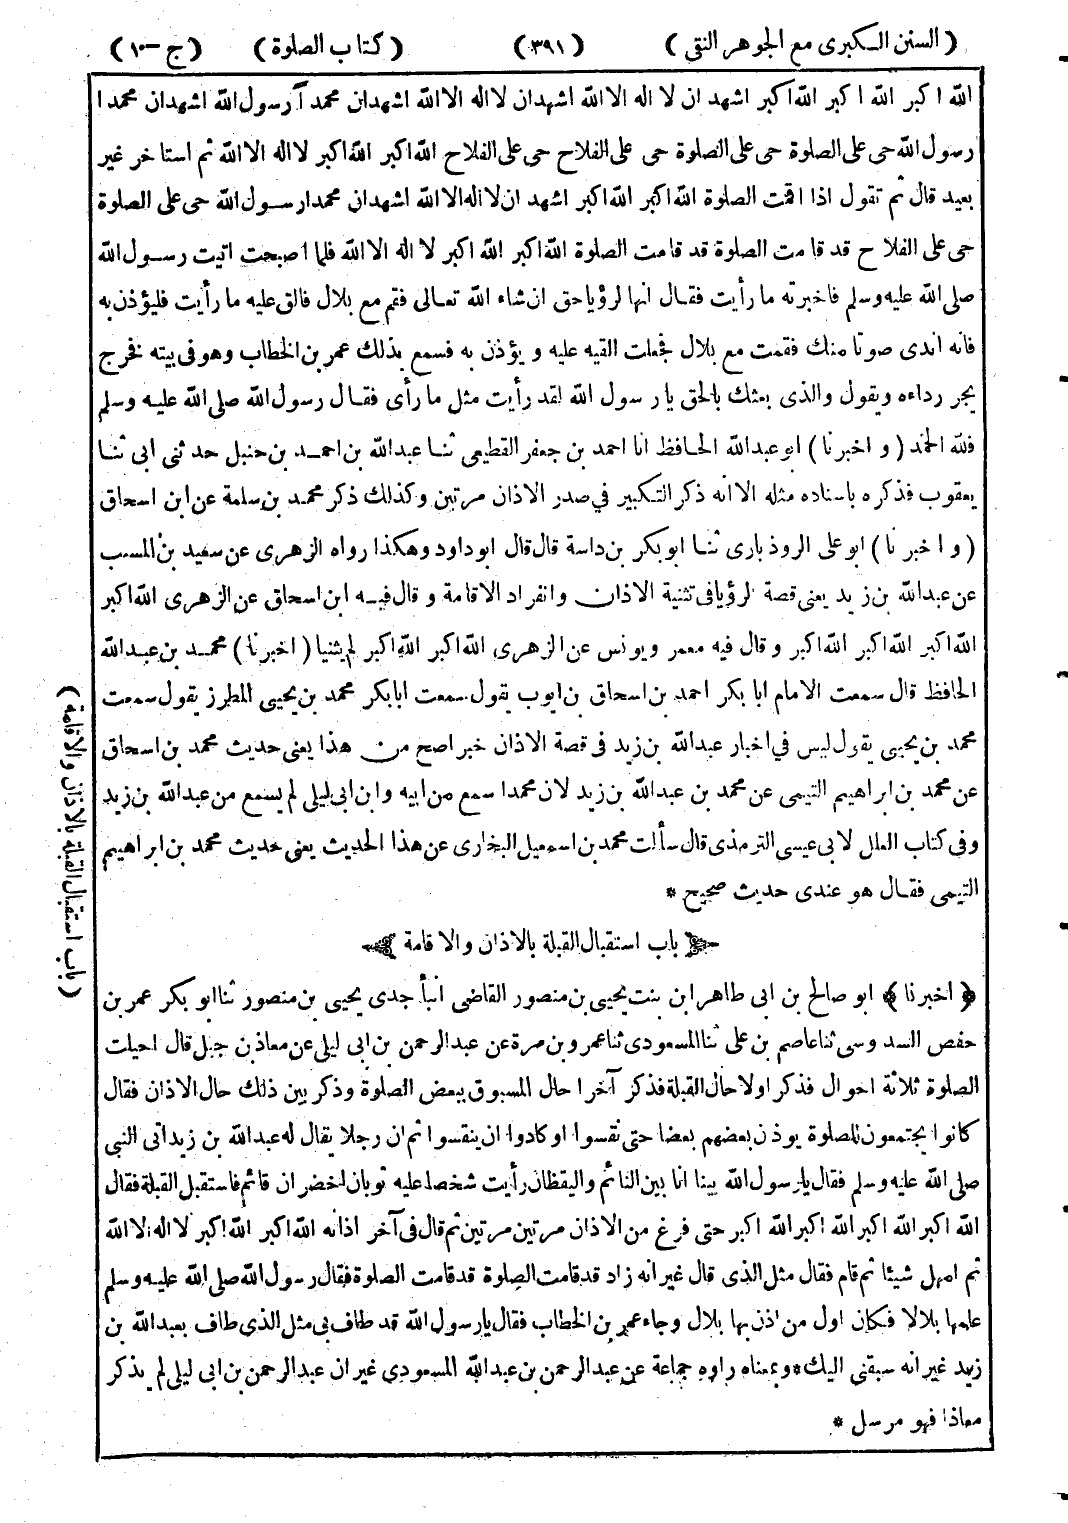 ( السنن الكبرى مع الجوهر النقى ) ( ٣٩١ ) ( كتاب الصلوة ) ( ج - ١٠ )
الله اكبر الله اكبر الله اكبر اشهد ان لا اله الا الله اشهد ان لا اله الا الله اشهدان محمدا رسول الله اشهدان محمدا
رسول الله حى على الصلوة حى على الصلوة حى على الفلاح حى على الفلاح الله اكبر الله اكبر لا اله الا الله ثم استاخر غير
بعيد قال ثم تقول اذا اقمت الصلوة الله اكبر الله اكبر اشهد ان لا اله الا الله اشهدان محمدا رسول الله حى على الصلوة
حى على الفلاح قد قامت الصلوة قد قامت الصلوة الله اكبر الله اكبر لا اله الا الله فلما اصبحت اتيت رسول الله
صلى الله عليه وسلم فاخبرته ما رأيت فقال انها لرؤيا حق ان شاء الله تعالى فقم مع بلال فالق عليه ما رأيت فليؤذن به
فانه اندى صوتا منك فقمت مع بلال فجعلت القيه عليه ويؤذن به فسمع بذلك عمر بن الخطاب وهو فى بيته فخرج
يجر رداءه ويقول والذى بعثك بالحق يا رسول الله لقد رأيت مثل ما رأى فقال رسول الله صلى الله عليه وسلم
فلله الحمد ( و اخبرنا ) ابو عبدالله الحافظ انا احمد بن جعفر القطيعى ثنا عبدالله بن احمد بن حنبل حدثنى ابى ثنا
يعقوب فذكره باسناده مثله الا انه ذكر التكبير في صدر الاذان مرتين وكذلك ذكر محمد بن سلمة عن ابن اسحاق
( و اخبرنا ) ابو على الروذبارى ثنا ابو بكر بن داسة قال قال ابو داود وهكذا رواه الزهرى عن سعيد بن المسيب
عن عبدالله بن زيد يعنى قصة الرؤيا فى تثنية الاذان وانفراد الاقامة وقال فيه ابن اسحاق عن الزهرى الله اكبر
الله اكبر الله اكبر الله اكبر وقال فيه معمر ويونس عن الزهرى الله اكبر الله اكبر لم يثنيا ( اخبرنا ) محمد بن عبدالله
الحافظ قال سمعت الامام ابا بكر احمد بن اسحاق بن ايوب يقول سمعت ابا بكر محمد بن يحيى المطرز يقول سمعت
محمد بن يحيى يقول ليس في اخبار عبدالله بن زيد فى قصة الاذان خبر اصح من هذا يعنى حديث محمد بن اسحاق
عن محمد بن ابراهيم التيمى عن محمد بن عبدالله بن زيد لان محمدا سمع من ابيه وابن ابى ليلى لم يسمع من عبدالله بن زيد
وفى كتاب العلل لابى عيسى الترمذى قال سألت محمد بن اسمعيل البخارى عن هذا الحديث يعنى حديث محمد بن ابراهيم
التيمى فقال هو عندى حديث صحيح *
باب استقبال القبلة بالاذان والاقامة
( باب استقبال القبلة بالاذان والاقامة )
﴿ اخبرنا ﴾ ابو صالح بن ابى طاهر ابن بنت يحيى بن منصور القاضى انبأ جدى يحيى بن منصور ثنا ابو بكر عمر بن
حفص السدوسى ثنا عاصم بن على ثنا المسعودى ثنا عمرو بن مرة عن عبدالرحمن بن ابى ليلى عن معاذ بن جبل قال احيلت
الصلوة ثلاثة احوال فذكر اولا حال القبلة فذكر آخرا حال المسبوق ببعض الصلوة وذكر بين ذلك حال الاذان فقال
كانوا يجتمعون للصلوة يوذن بعضهم بعضا حتى نقسوا او كادوا ان ينقسوا ثم ان رجلا يقال له عبدالله بن زيد اتى النبى
صلى الله عليه وسلم فقال يا رسول الله بينا انا بين النائم واليقظان رأيت شخصا عليه ثوبان اخضران قائم فاستقبل القبلة فقال
الله اكبر الله اكبر الله اكبر الله اكبر حتى فرغ من الاذان مرتين مرتين ثم قال فى آخر اذانه الله اكبر الله اكبر لا اله الا الله
ثم امهل شيئا ثم قام فقال مثل الذى قال غير انه زاد قد قامت الصلوة قد قامت الصلوة فقال رسول الله صلى الله عليه وسلم
علمها بلالا فكان اول من اذن بها بلال وجاء عمر بن الخطاب فقال يا رسول الله قد طاف بى مثل الذى طاف بعبدالله بن
زيد غير انه سبقنى اليك * وبمعناه رواه جماعة عن عبدالرحمن بن عبدالله المسعودى غير ان عبدالرحمن بن ابى ليلى لم يذكر
معاذا فهو مرسل *